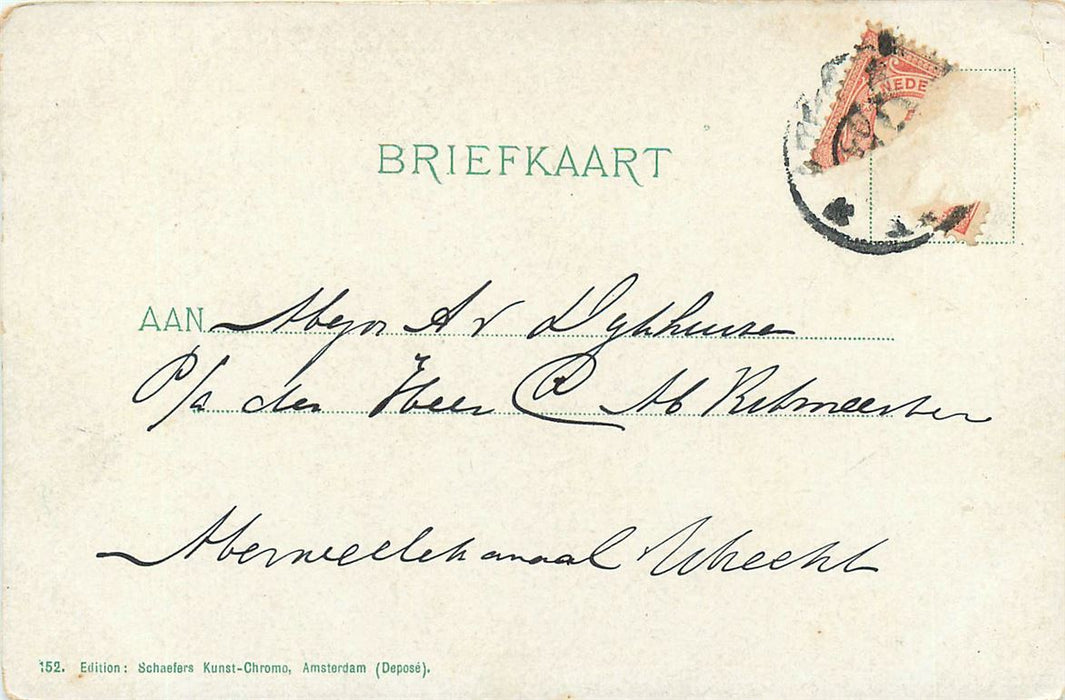 NEDE
BRIEFKAART
AAN Mejor A v Dykhuize
P/a den Heer C Ritmeester
Merwedekanaal Utrecht
152. Edition: Schaefers Kunst-Chromo, Amsterdam (Deposé).